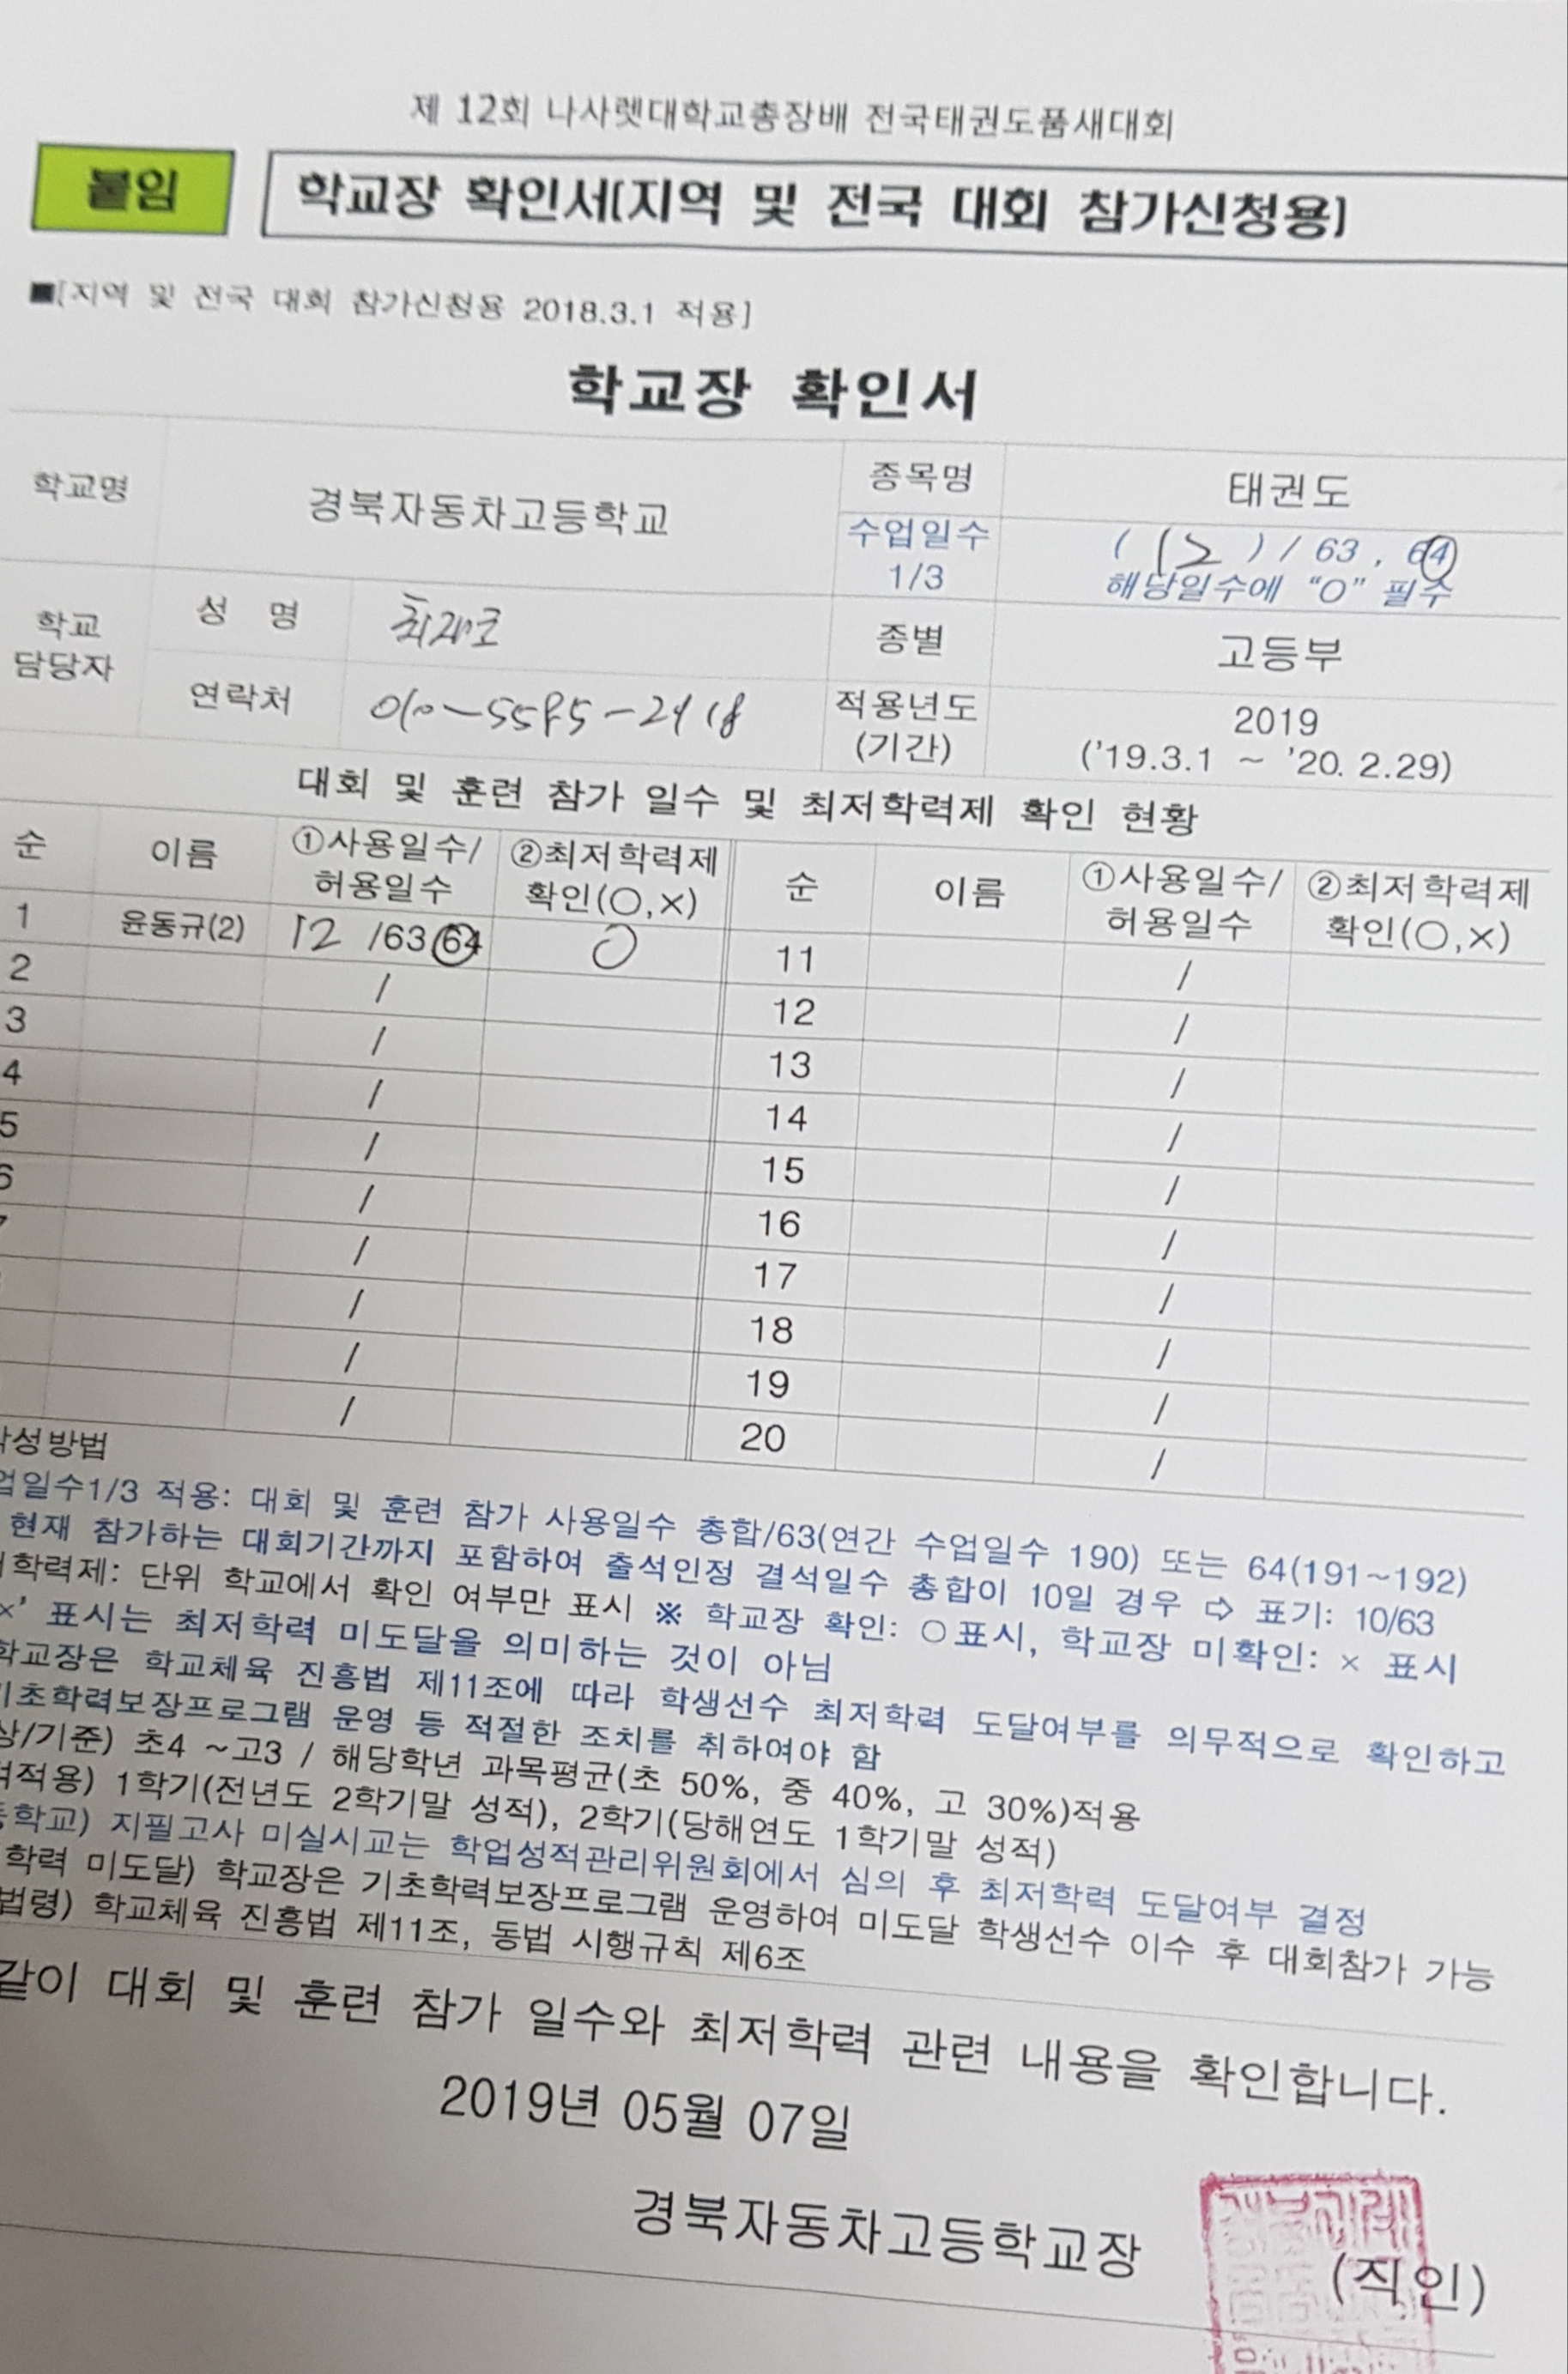 제 12회 나사렛대학교총장배 전국태권도품새대회
붙임
학교장 확인서[지역 및 전국 대회 참가신청용]
■[지역 및 전국 대회 참가신청용 2018.3.1 적용]
학교장 확인서
학교명 경북자동차고등학교 종목명 태권도
수업일수 1/3 ( 12 ) / 63 , 64
해당일수에 “O” 필수
학교 담당자 성 명 종별 고등부
연락처 적용년도 (기간) 2019
('19.3.1 ~ '20. 2.29)
대회 및 훈련 참가 일수 및 최저학력제 확인 현황
순 이름 ①사용일수/ 허용일수 ②최저학력제 확인(○,×) 순 이름 ①사용일수/ 허용일수 ②최저학력제 확인(○,×)
1 윤동규(2) 12 /63 64 ○ 11 /
2 / 12 /
3 / 13 /
4 / 14 /
5 / 15 /
6 / 16 /
/ 17 /
/ 18 /
/ 19 /
/ 20 /
작성방법
업일수1/3 적용: 대회 및 훈련 참가 사용일수 총합/63(연간 수업일수 190) 또는 64(191~192)
현재 참가하는 대회기간까지 포함하여 출석인정 결석일수 총합이 10일 경우 ⇨ 표기: 10/63
학력제: 단위 학교에서 확인 여부만 표시 ※ 학교장 확인: ○표시, 학교장 미확인: × 표시
×' 표시는 최저학력 미도달을 의미하는 것이 아님
학교장은 학교체육 진흥법 제11조에 따라 학생선수 최저학력 도달여부를 의무적으로 확인하고
기초학력보장프로그램 운영 등 적절한 조치를 취하여야 함
상/기준) 초4 ~고3 / 해당학년 과목평균(초 50%, 중 40%, 고 30%)적용
적적용) 1학기(전년도 2학기말 성적), 2학기(당해연도 1학기말 성적)
등학교) 지필고사 미실시교는 학업성적관리위원회에서 심의 후 최저학력 도달여부 결정
학력 미도달) 학교장은 기초학력보장프로그램 운영하여 미도달 학생선수 이수 후 대회참가 가능
법령) 학교체육 진흥법 제11조, 동법 시행규칙 제6조
같이 대회 및 훈련 참가 일수와 최저학력 관련 내용을 확인합니다.
2019년 05월 07일
경북자동차고등학교장 (직인)